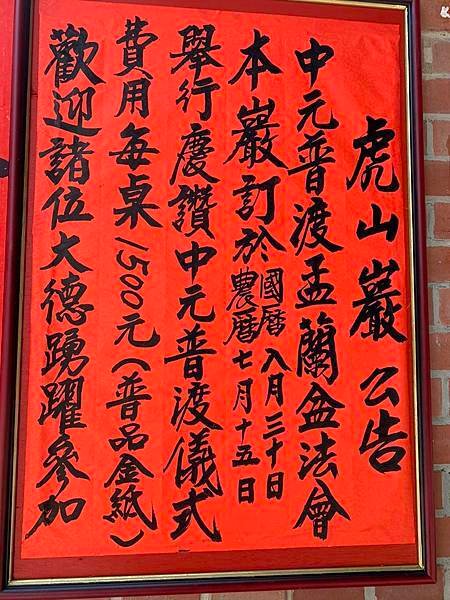 虎山巖公告
中元普渡孟蘭盆法會
本巖訂於國曆八月三十日
農曆七月十五日
舉行慶讚中元普渡儀式
費用每桌1500元(普品金紙)
歡迎諸位大德踴躍參加